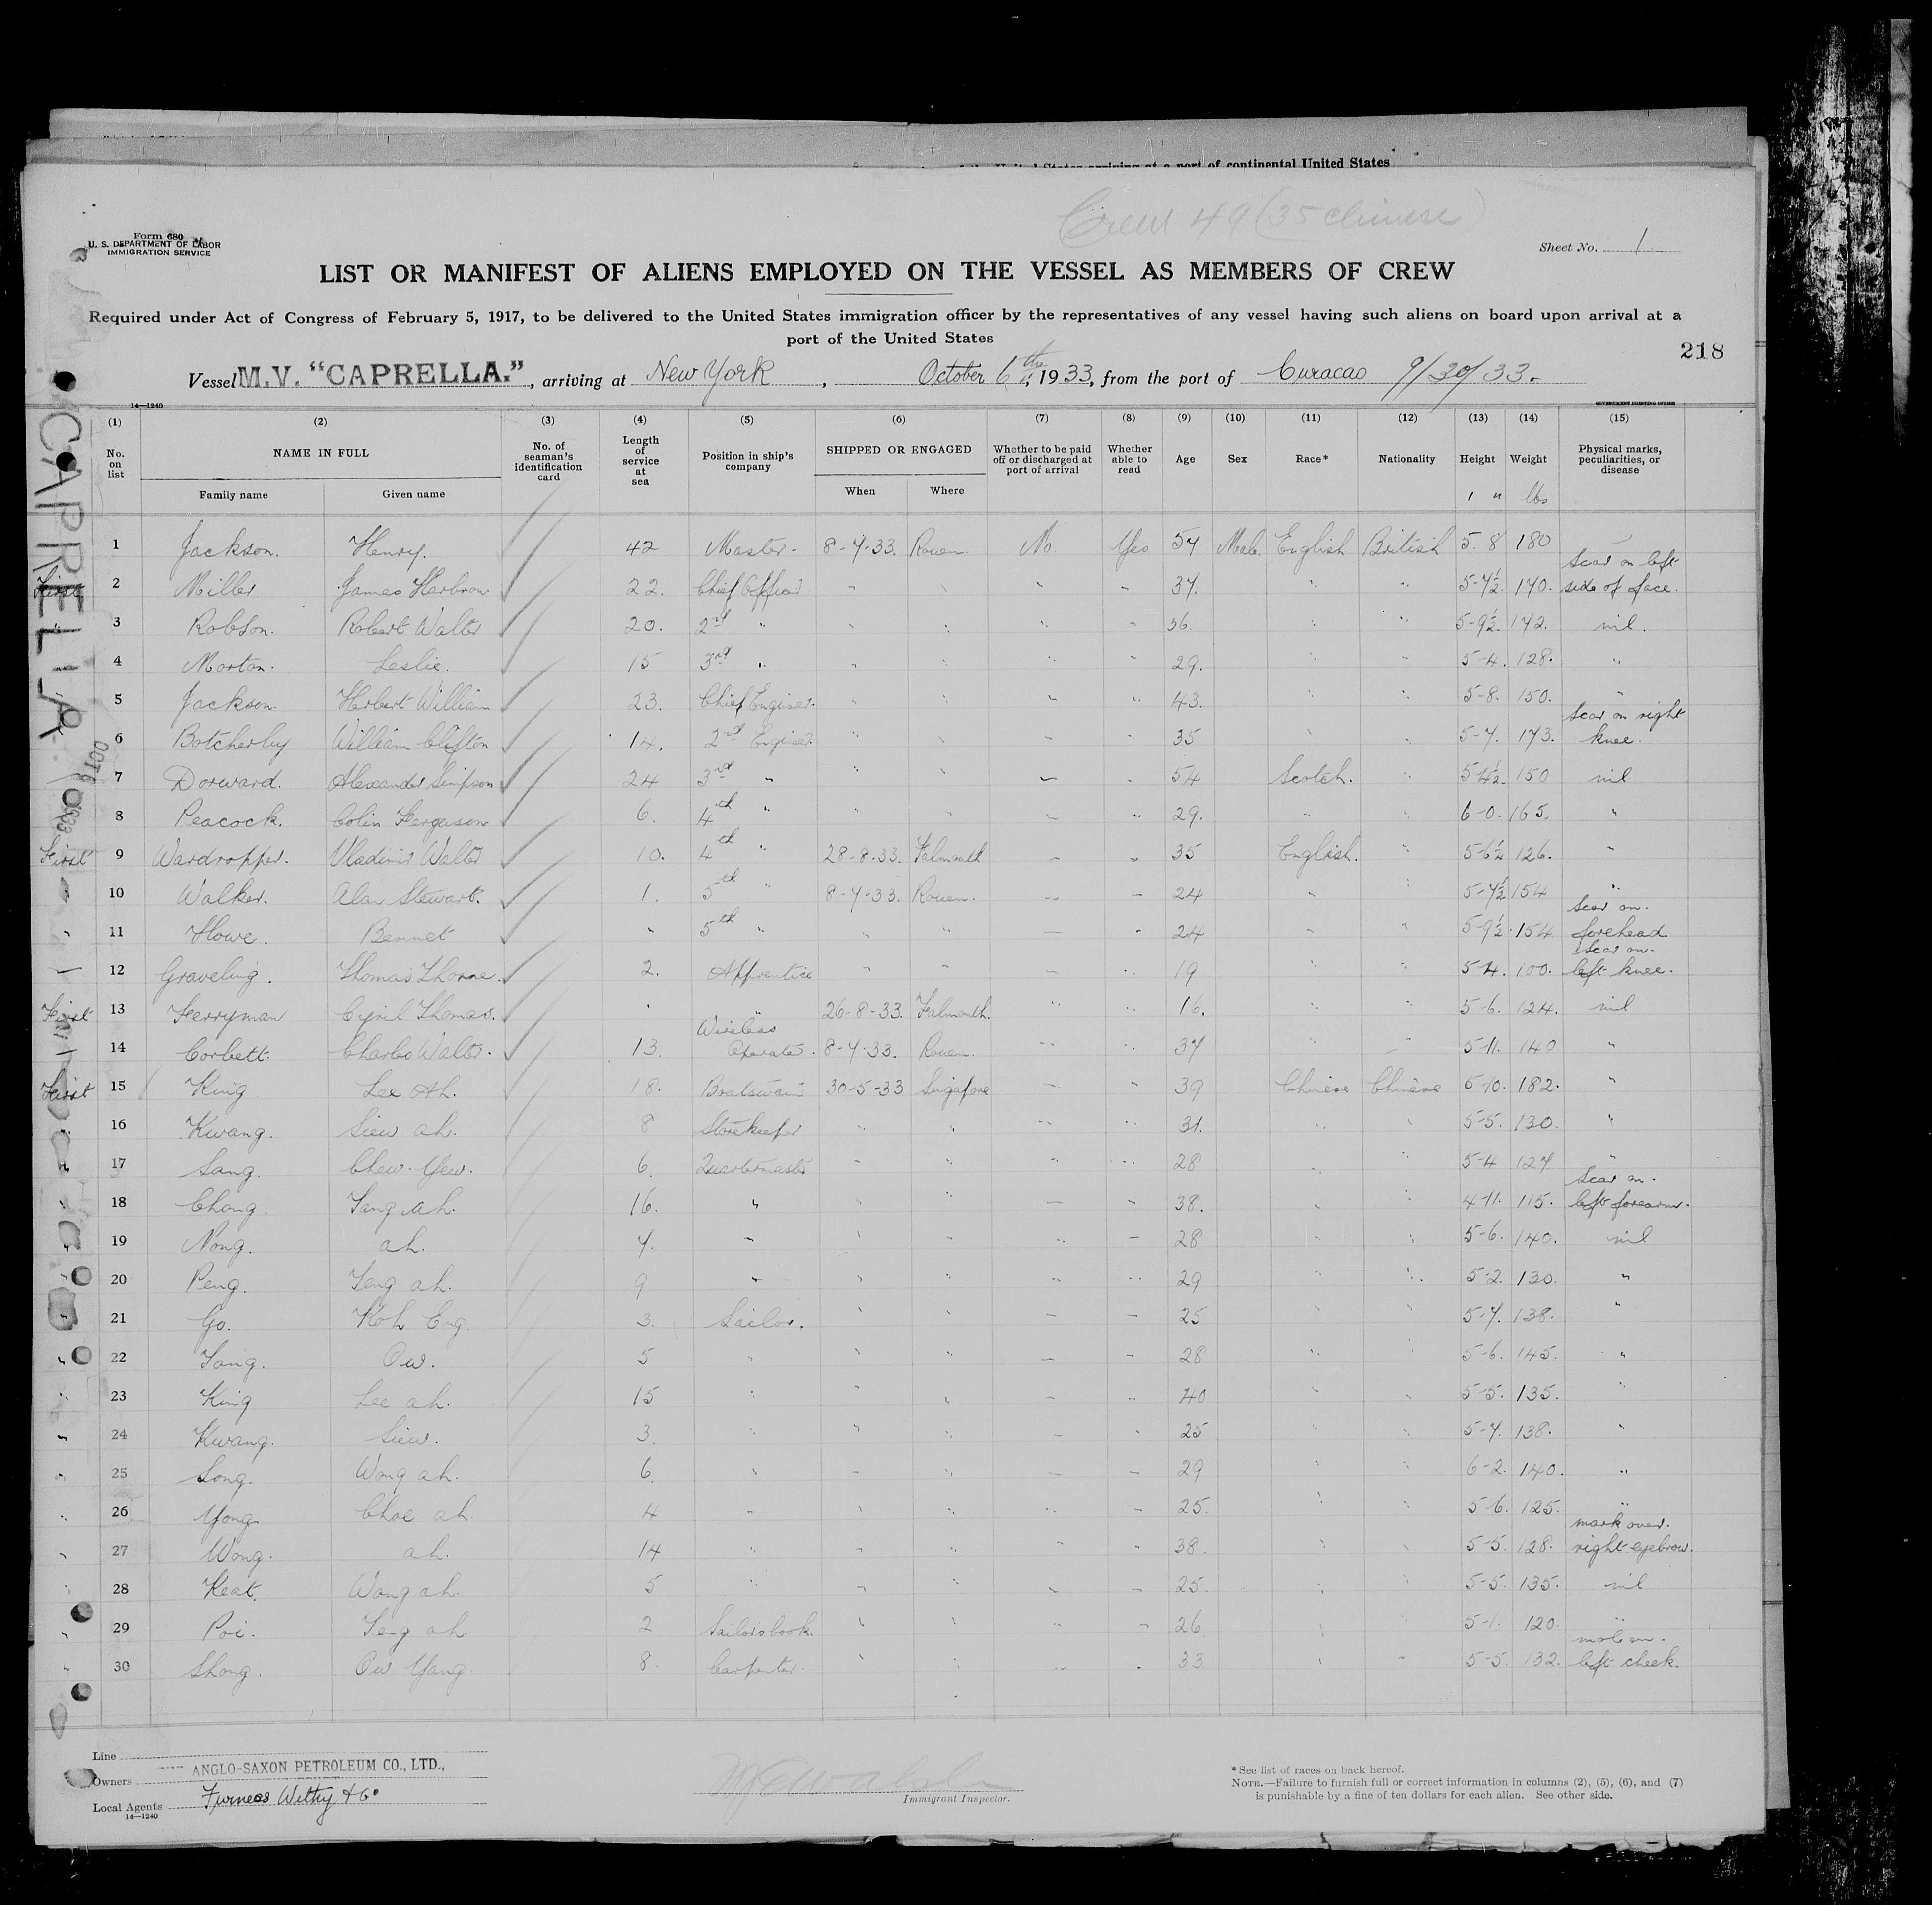 of the United States arriving at a port of continental United States
Crew 49 (35 Chinese)
Form 680
U. S. DEPARTMENT OF LABOR
IMMIGRATION SERVICE
Sheet No. 1
LIST OR MANIFEST OF ALIENS EMPLOYED ON THE VESSEL AS MEMBERS OF CREW
Required under Act of Congress of February 5, 1917, to be delivered to the United States immigration officer by the representatives of any vessel having such aliens on board upon arrival at a
port of the United States
218
Vessel M.V. "CAPRELLA.", arriving at New York, October 6th, 1933, from the port of Curacao 9/30/33.
14—1240 GOVERNMENT PRINTING OFFICE
CAPRELLA
OCT 6 1933
(1) (2) (3) (4) (5) (6) (7) (8) (9) (10) (11) (12) (13) (14) (15)
No. on list NAME IN FULL No. of seaman's identification card Length of service at sea Position in ship's company SHIPPED OR ENGAGED Whether to be paid off or discharged at port of arrival Whether able to read Age Sex Race* Nationality Height Weight Physical marks, peculiarities, or disease
Family name Given name When Where ' " lbs
1 Jackson. Henry. 42 Master - 8-7-33. Rouen. No. Yes 54 Male. English British 5.8 180 —
First 2 Miller James Harbron 22. Chief Officer " " " " 37. " " 5-7½. 170. Scar on left side of face.
" 3 Robson. Robert Walter 20. 2nd " " " " " 36. " " 5-9½. 172. nil.
4 Morton. Leslie. 15 3rd " " " " " 29. " " 5-4. 128. "
5 Jackson. Herbert William 23. Chief Engineer. " " " " 43. " " 5-8. 150. "
6 Botcherby William Clifton 14. 2nd Engineer. " " " " 35 " " 5-7. 173. Scar on right knee.
7 Dorward. Alexander Simpson 24 3rd " " " " " 54 Scotch. " 5-4½. 150 nil
8 Peacock. Colin Ferguson 6. 4th " " " " " 29. " " 6-0. 165. "
First 9 Wardropper. Vladimir Walter 10. 4th " 28-8-33. Falmouth " " 35 English. " 5-6½ 126. "
" 10 Walker. Alan Stewart. 1. 5th " 8-7-33. Rouen. " " 24 " " 5-7½ 154 "
" 11 Howe. Bennet " 5th " " " " " 24 " " 5-9½. 154 Scar on. forehead.
12 Graveling. Thomas Thorne. 2. Apprentice " " " " 19 " " 5-4. 100. Scar on. left knee.
First 13 Ferryman Cyril Thomas. " " 26-8-33. Falmouth. " " 16. " " 5-6. 124. nil
14 Corbett. Charles Walter. 13. Wireless Operator. 8-7-33. Rouen. " " 37 " " 5-11. 140 "
First 15 King Lee Ah. 18. Boatswain 30-5-33 Singapore " " 39 Chinese Chinese 5-10. 182. "
" 16 Kwang. Siew ah. 8 Storekeeper " " " " 31. " " 5-5. 130. "
" 17 Sang. Chew Yew. 6. Quartermaster " " " " 28 " " 5-4 127. "
" 18 Chong. Tang ah. 16. " " " " " 38. " " 4-11. 115. Scar on. left forearm.
" 19 Nong. ah. 7. " " " " " 28 " " 5-6. 140. nil
" 20 Peng. Teng ah. 9 " " " " " 29 " " 5-2. 130. "
" 21 Go. Koh Eng. 3. Sailor. " " " " 25 " " 5-7. 138. "
" 22 Tang. Ow. 5 " " " " " 28 " " 5-6. 145. "
" 23 King Lee ah. 15 " " " " " 40 " " 5-5. 135. "
" 24 Kwang. Siew. 3. " " " " " 25 " " 5-7. 138. "
" 25 Song. Wong ah. 6. " " " " " 29 " " 6-2. 140. "
" 26 Yong Choe ah. 4 " " " " " 25. " " 5-6. 125. "
" 27 Wong. ah. 14 " " " " " 38. " " 5-5. 128. mark over. right eyebrow.
" 28 Keat. Wong ah. 5 " " " " " 25. " " 5-5. 135. nil
" 29 Poi. Teng ah 2 Sailors Cook. " " " " 26 " " 5-1. 120. "
" 30 Shong. Ow Yang. 8. Carpenter. " " " " 33. " " 5-5. 132. mole on. left cheek.
Line
Owners ANGLO-SAXON PETROLEUM CO., LTD.,
Local Agents Furness Withy & Co
14—1240
Immigrant Inspector.
* See list of races on back hereof.
NOTE.—Failure to furnish full or correct information in columns (2), (5), (6), and (7)
is punishable by a fine of ten dollars for each alien. See other side.